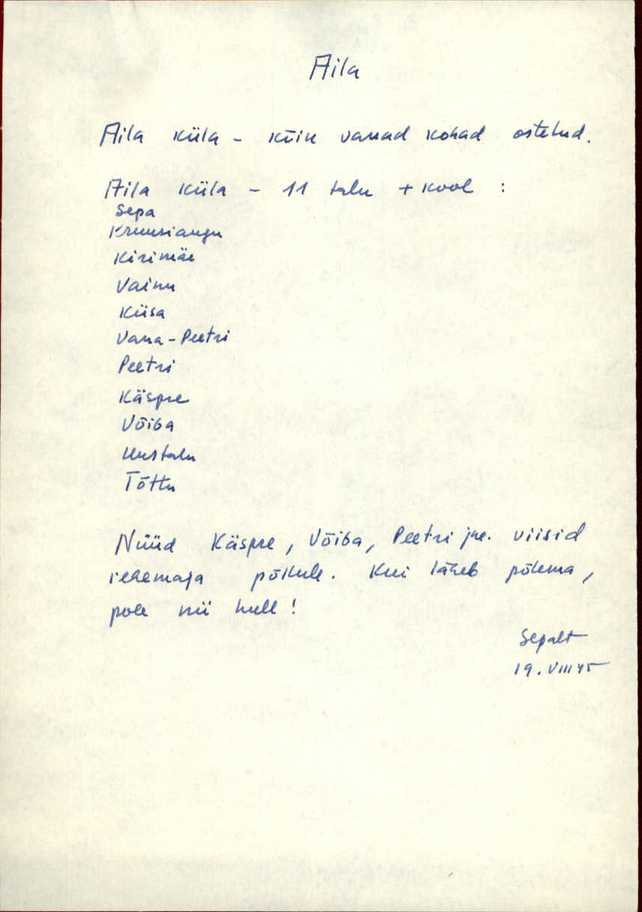 Aila
Aila küla - kõik vanad kohad ostetud.
Aila küla - 11 talu + kool :
Sepa
Kruusiaugu
Kirimäe
Vainu
Küsa
Vana-Peetri
Peetri
Käspre
Võiba
Uustalu
Tõttu
Nüüd Käspre, Võiba, Peetri jne. viisid
rehemaja põllule. Kui läheb põlema,
pole nii hull!
Sepalt
19. VIII 45